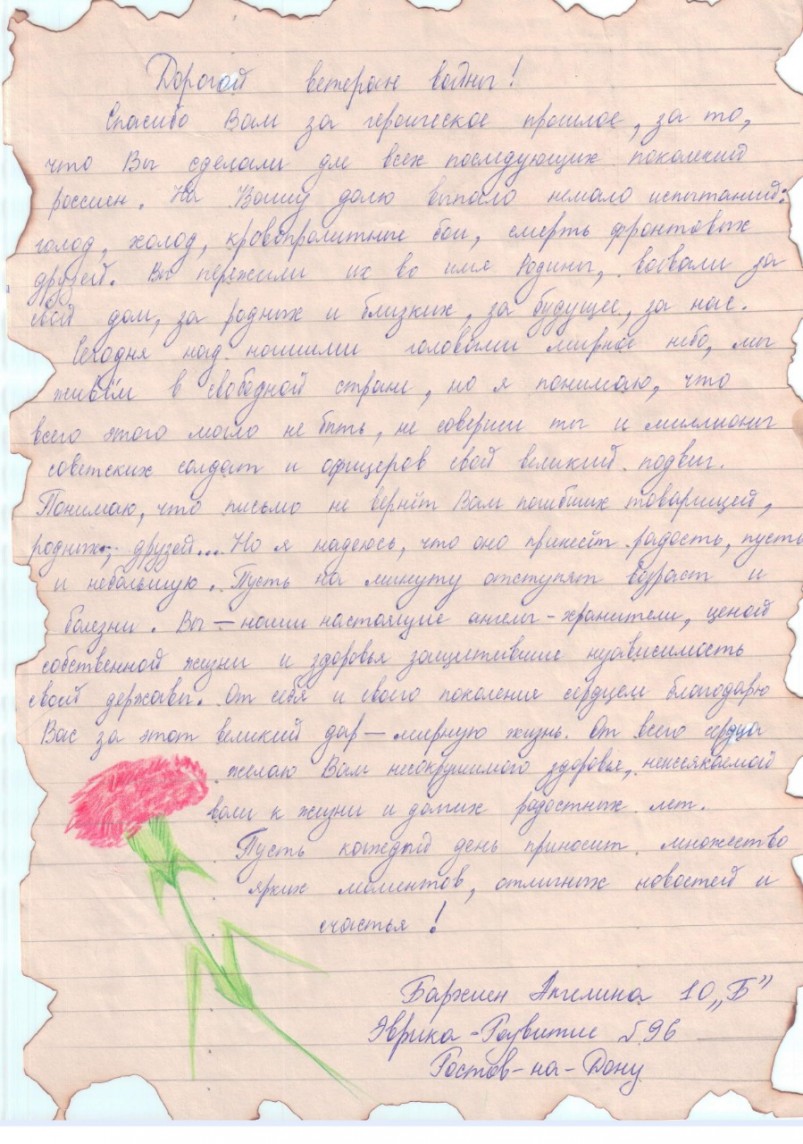 Дорогой ветеран войны!
Спасибо Вам за героическое прошлое, за то,
что Вы сделали для всех последующих поколений
россиян. На Вашу долю выпало немало испытаний:
голод, холод, кровопролитные бои, смерть фронтовых
друзей. Вы пережили их во имя Родины, воевали за
свой дом, за родных и близких, за будущее, за нас.
Сегодня над нашими головами мирное небо, мы
живём в свободной стране, но я понимаю, что
всего этого могло не быть, не соверши ты и миллионы
советских солдат и офицеров свой великий подвиг.
Понимаю, что письмо не вернёт Вам погибших товарищей,
родных, друзей... Но я надеюсь, что оно принесёт радость, пусть
и небольшую. Пусть на минуту отступят возраст и
болезни. Вы — наши настоящие ангелы-хранители, ценой
собственной жизни и здоровья защитившие независимость
своей державы. От себя и своего поколения сердцем благодарю
Вас за этот великий дар — мирную жизнь. От всего сердца
желаю Вам несокрушимого здоровья, неиссякаемой
воли к жизни и долгих радостных лет.
Пусть каждый день приносит множество
ярких моментов, отличных новостей и
счастья!
Ангелина 10 „Б”
Эврика-Развитие 96
Ростов-на-Дону